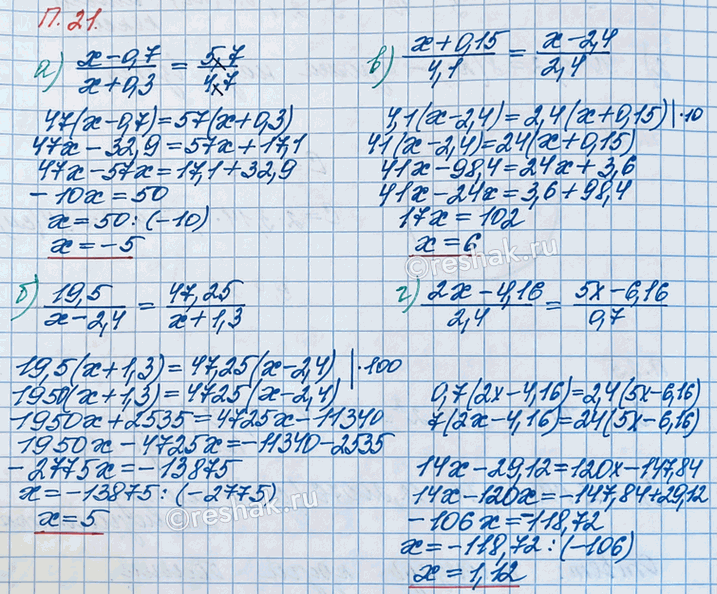 П.21.
а) (x-0,7)/(x+0,3) = 5,7/4,7
47(x-0,7)=57(x+0,3)
47x-32,9=57x+17,1
47x-57x=17,1+32,9
-10x=50
x=50:(-10)
x=-5
б) 19,5/(x-2,4) = 47,25/(x+1,3)
19,5(x+1,3)=47,25(x-2,4) |·100
1950(x+1,3)=4725(x-2,4)
1950x+2535=4725x-11340
1950x-4725x=-11340-2535
-2775x=-13875
x=-13875:(-2775)
x=5
в) (x+0,15)/4,1 = (x-2,4)/2,4
4,1(x-2,4)=2,4(x+0,15) |·10
41(x-2,4)=24(x+0,15)
41x-98,4=24x+3,6
41x-24x=3,6+98,4
17x=102
x=6
г) (2x-4,16)/2,4 = (5x-6,16)/0,7
0,7(2x-4,16)=2,4(5x-6,16)
7(2x-4,16)=24(5x-6,16)
14x-29,12=120x-147,84
14x-120x=-147,84+29,12
-106x=-118,72
x=-118,72:(-106)
x=1,12
©reshak.ru
©reshak.ru